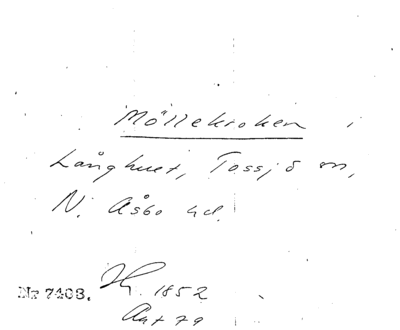 Möllekroken i
Långhult, Tossjö sn,
N. Åsbo hd.
Nr 7408. 1852
Ant 79